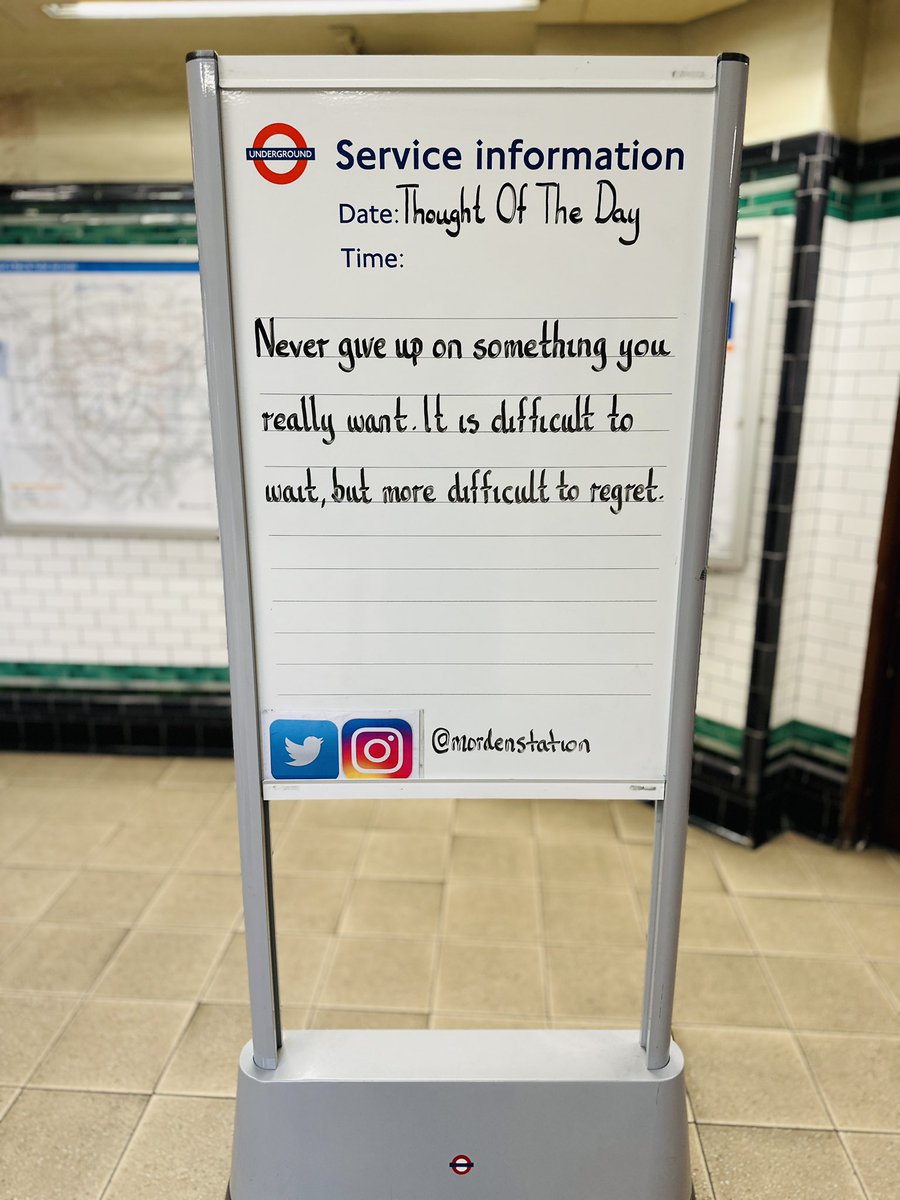 UNDERGROUND
Service information
Date: Thought Of The Day
Time:
Never give up on something you
really want. It is difficult to
wait, but more difficult to regret.
@mordenstation